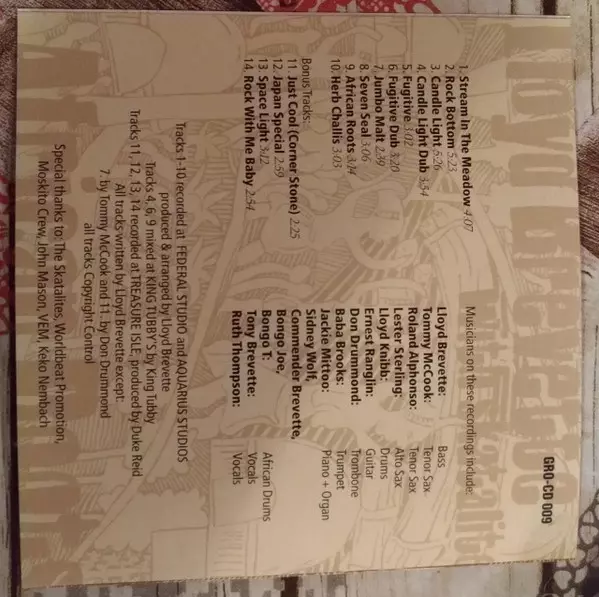 GRO-CD 009
1 Stream In The Meadow 4.07
2. Rock Bottom 5.23
3 Candle Light 5.26
4. Candle Light Dub 3.54
5. Fugitive 3.02
6. Fugitive Dub 3.20
7. Jumbo Malt 2.39
8. Seven Seal 3.06
9. African Roots 3.04
10 Herb Challis 3.03
Bonus Tracks:
11 Just Cool (Corner Stone) 2.25
12 Japan Special 2.59
13 Space Light 3.12
14. Rock With Me Baby 2.54
Musicians on these recordings include:
Lloyd Brevette: Bass
Tommy McCook: Tenor Sax
Roland Alphonso: Tenor Sax
Lester Sterling: Alto Sax
Lloyd Knibb: Drums
Ernest Ranglin: Guitar
Don Drummond: Trombone
Baba Brooks: Trumpet
Jackie Mittoo: Piano + Organ
Sidney Wolf,
Commender Brevette,
Bongo Joe,
Bongo T: African Drums
Tony Brevette: Vocals
Ruth Thompson: Vocals
Tracks 1-10 recorded at FEDERAL STUDIO and AQUARIUS STUDIOS
produced & arranged by Lloyd Brevette
Tracks 4, 6, 9 mixed at KING TUBBY'S by King Tubby
Tracks 11, 12, 13, 14 recorded at TREASURE ISLE, produced by Duke Reid
All tracks written by Lloyd Brevette except:
7. by Tommy McCook and 11. by Don Drummond
all tracks Copyright Control
Special thanks to The Skatalites, Worldbeat Promotion,
Moskito Crew, John Mason, VEM, Keko Nembach